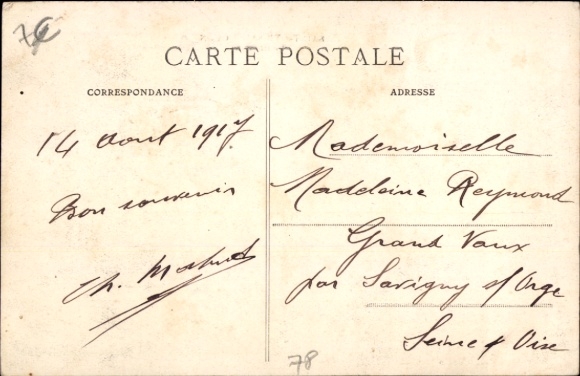 7€
CARTE POSTALE
CORRESPONDANCE
14 Aout 1917.
Bon souvenir
Ch.
ADRESSE
Mademoiselle
Madeleine Reymond
Grand Vaux
par Savigny s/ Orge
Seine & Oise
78